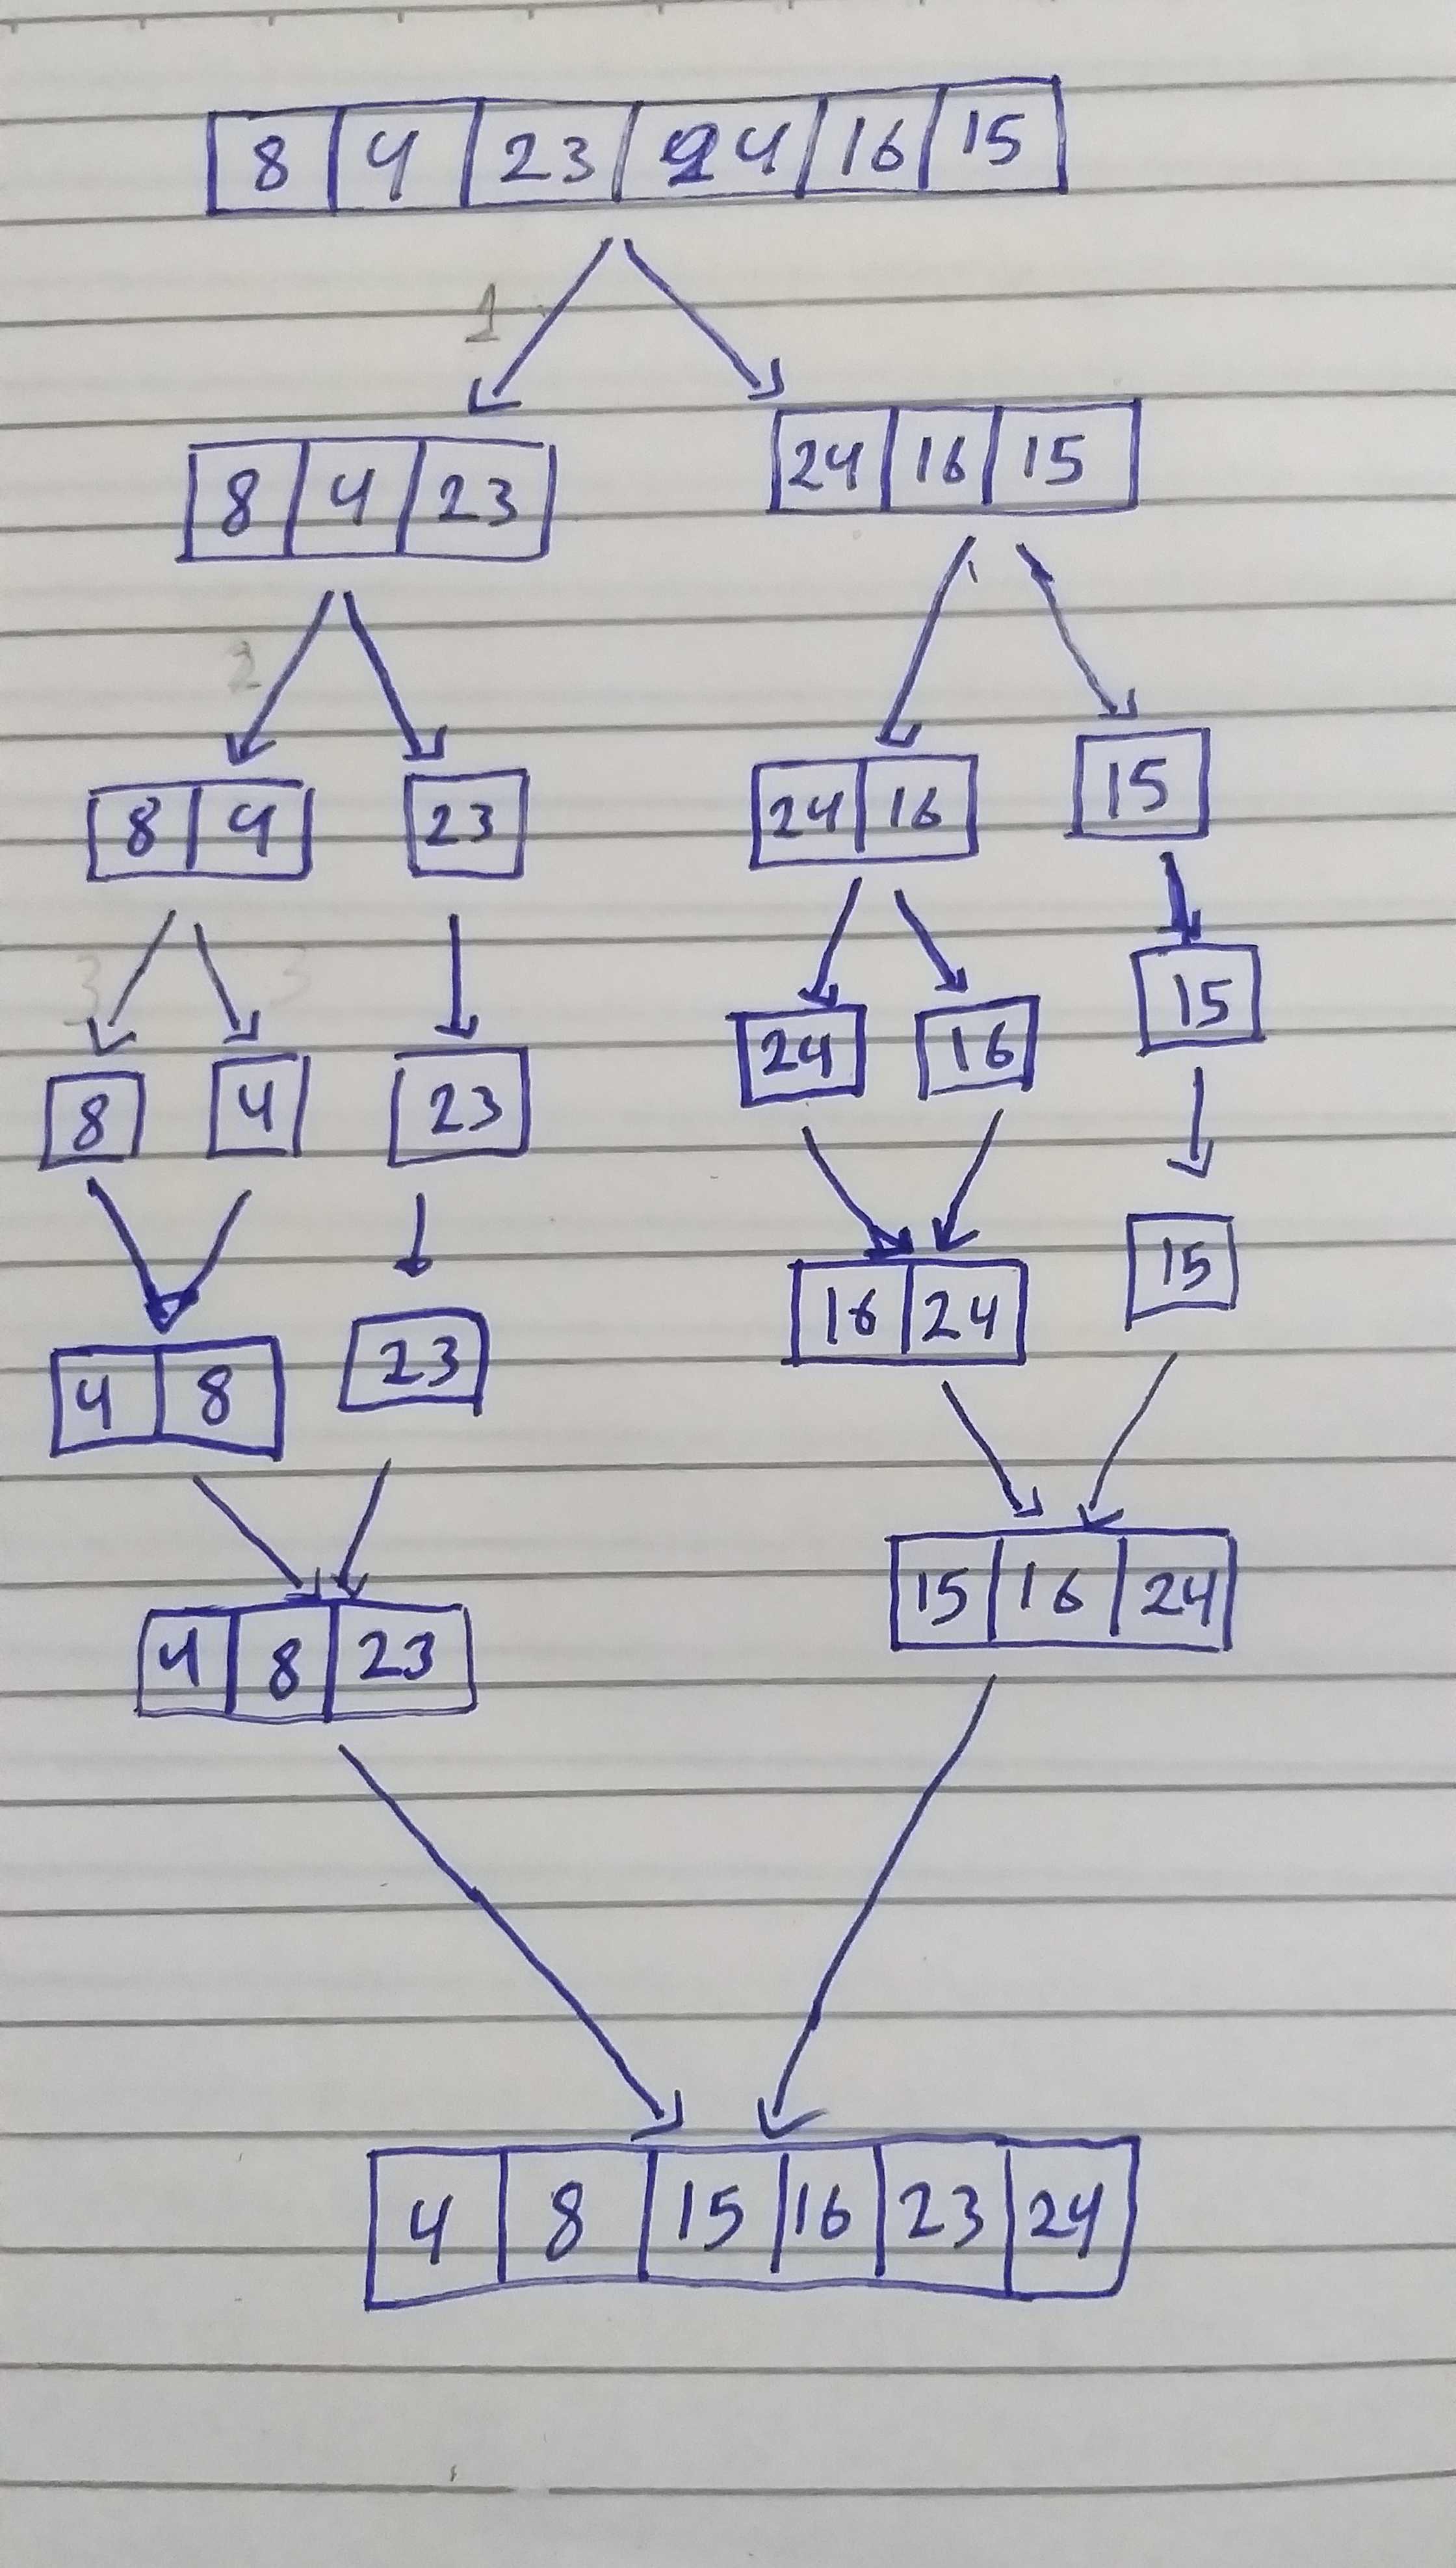 8 4 23 24 16 15
1
8 4 23 24 16 15
2
8 4 23 24 16 15
3 3
8 4 23 24 16 15
4 8 23 16 24 15
4 8 23 15 16 24
4 8 15 16 23 24